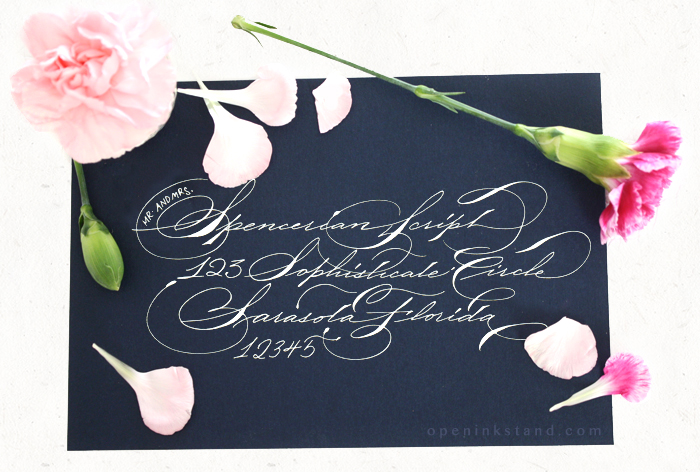 MR. AND MRS.
Spencerian Script
123 Sophisticate Circle
Sarasota Florida
12345
openinkstand.com